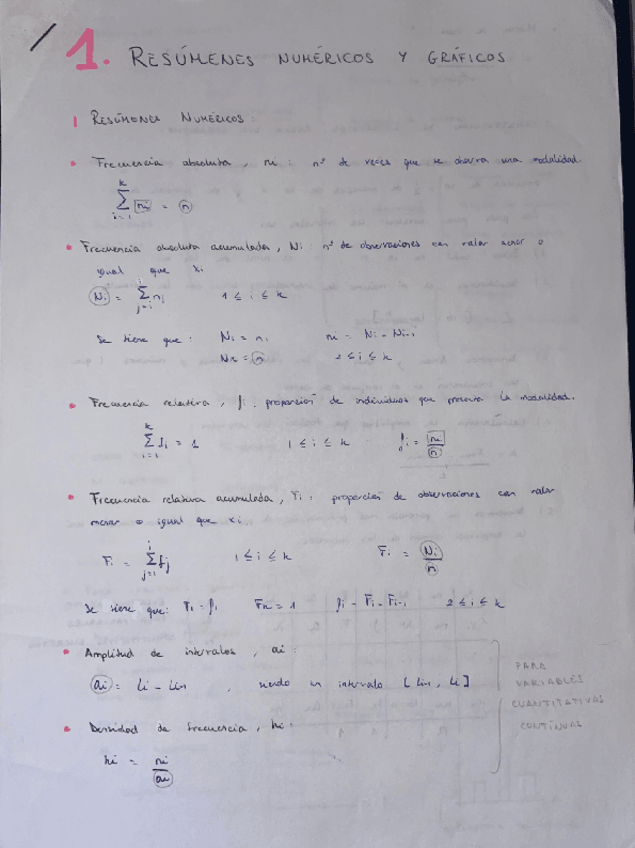 1. RESÚMENES NUMÉRICOS Y GRÁFICOS
1 RESÚMENES NUMÉRICOS:
• Frecuencia absoluta, ni: nº de veces que se observa una modalidad.
k
∑ ni = n
i=1
• Frecuencia absoluta acumulada, Ni: nº de observaciones con valor menor o
igual que xi
Ni = ∑ nj 1 ≤ i ≤ k
j=i
Se tiene que: N1 = n1 ni = Ni - Ni-1
Nk = n 2 ≤ i ≤ k
• Frecuencia relativa, fi: proporción de individuos que presenta la modalidad.
k
∑ fi = 1 1 ≤ i ≤ k fi = ni/n
i=1
• Frecuencia relativa acumulada, Fi: proporción de observaciones con valor
menor o igual que xi.
i
Fi = ∑ fj 1 ≤ i ≤ k Fi = Ni/n
j=1
Se tiene que: F1 = f1 Fk = 1 fi = Fi - Fi-1 2 ≤ i ≤ k
• Amplitud de intervalos, ai:
ai = Li - Li-1, siendo un intervalo [Li-1, Li]
PARA
VARIABLES
CUANTITATIVAS
CONTINUAS
• Densidad de frecuencia, hi:
hi = ni/ai